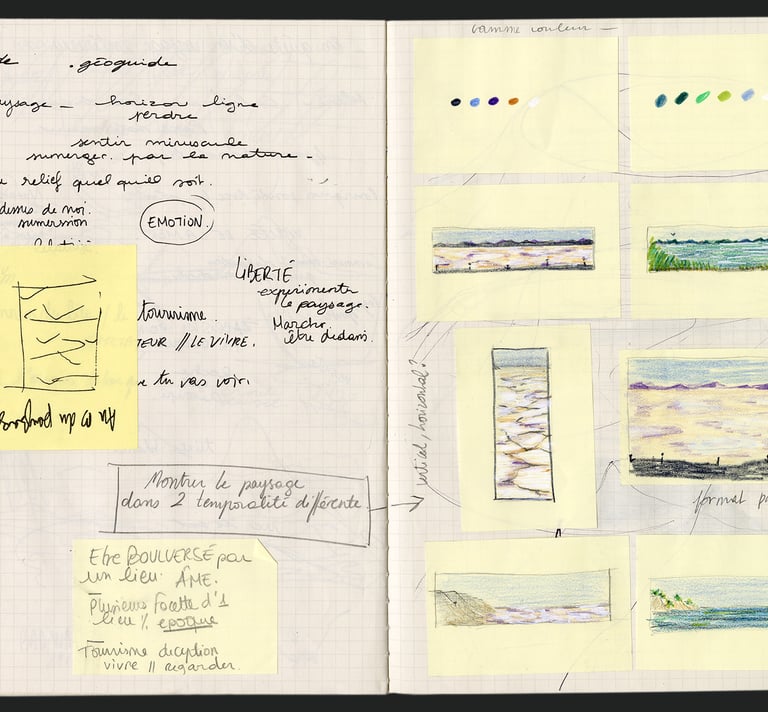 géoguide
horizon ligne
perdre
sentir minuscule
par la nature -
relief quel qu'il soit.
EMOTION.
LIBERTÉ
experimenter
le paysage.
tourisme.
Marche.
être dedans.
TEUR // LE VIVRE.
e tu vas voir.
Montrer le paysage
dans 2 temporalité différente
Etre BOULVERSÉ par
un lieu. ÂME.
Plusieurs facette d'1
lieu % epoque
Tourisme deception
vivre // regarder.
gamme couleur —
vertical, horizontal?
format